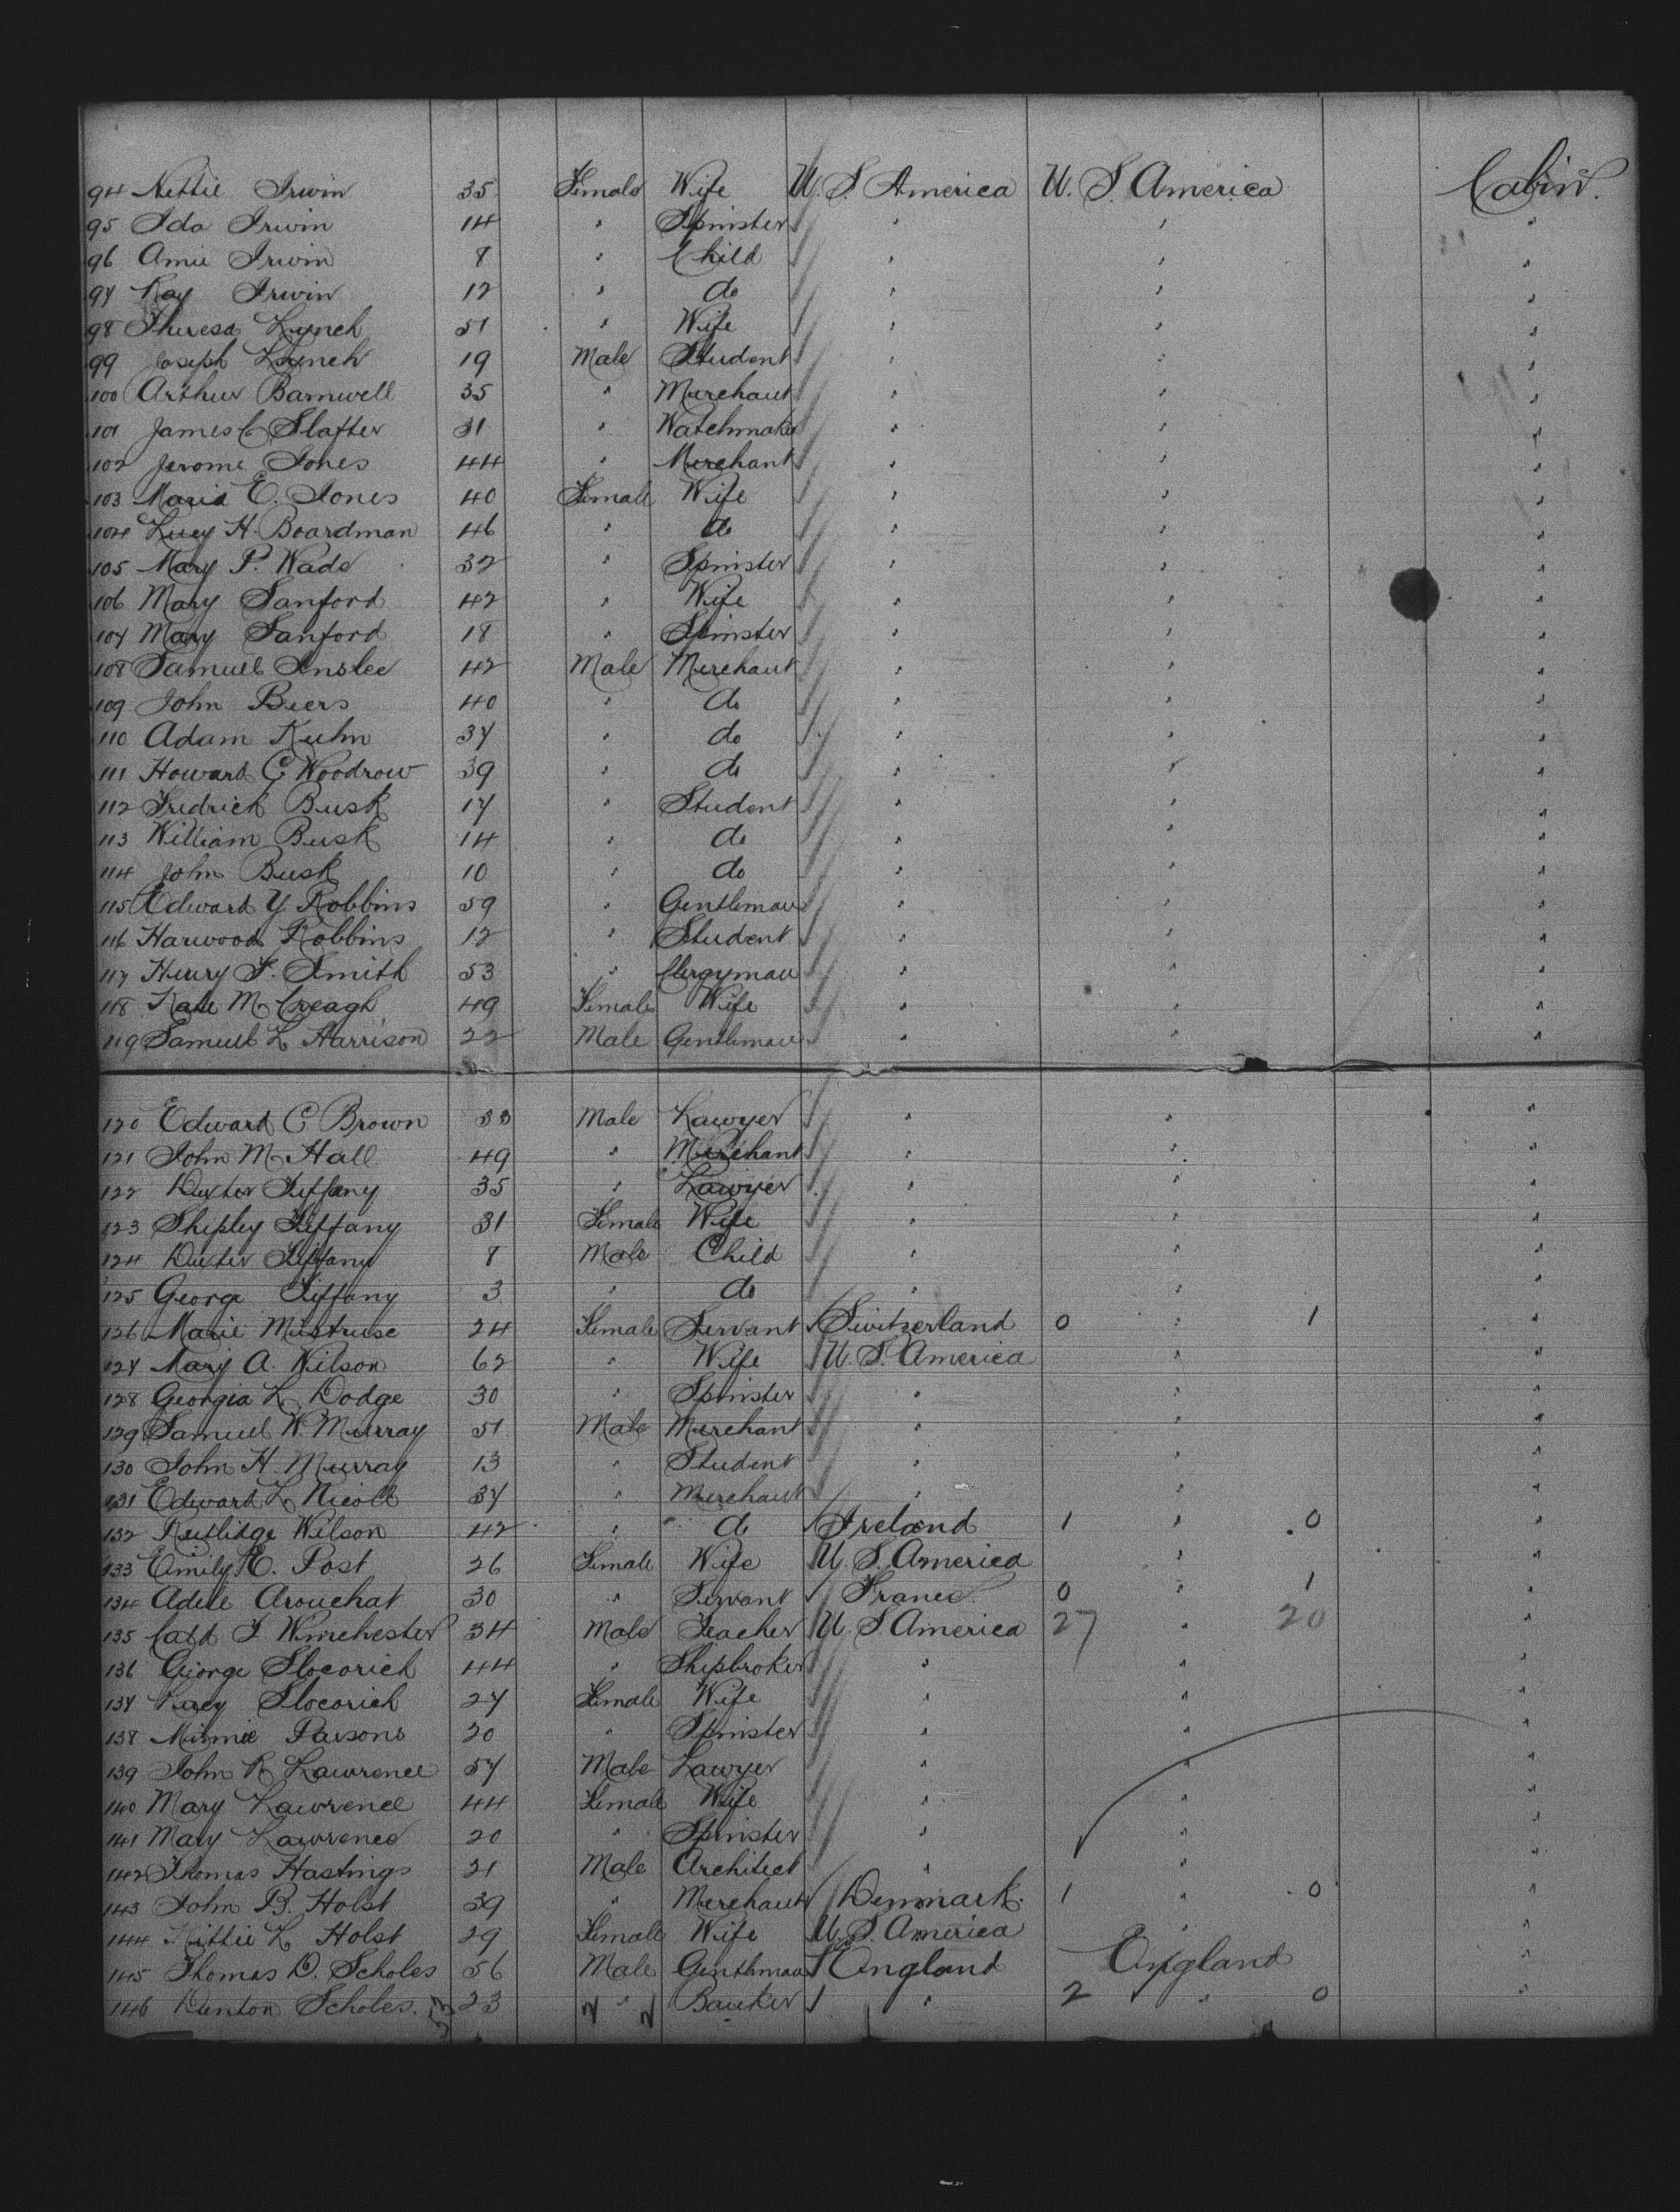 94 Nettie Irwin 35 Female Wife U. S. America U. S. America Cabin.
95 Ida Irwin 14 " Spinster " " "
96 Amie Irwin 8 " Child " " "
97 Ray Irwin 12 " do " " "
98 Theresa Lynch 51 " Wife " " "
99 Joseph Lynch 19 Male Student " " "
100 Arthur Barnwell 35 " Merchant " " "
101 James C Slafter 31 " Watchmaker " " "
102 Jerome Jones 44 " Merchant " " "
103 Maria E. Jones 40 Female Wife " " "
104 Lucy H. Boardman 46 " do " " "
105 Mary P. Wade 32 " Spinster " " "
106 Mary Sanford 42 " Wife " " "
107 Mary Sanford 18 " Spinster " " "
108 Samuel Inslee 42 Male Merchant " " "
109 John Beers 40 " do " " "
110 Adam Kuhn 37 " do " " "
111 Howard C Woodrow 39 " do " " "
112 Fredrick Busk 17 " Student " " "
113 William Busk 14 " do " " "
114 John Busk 10 " do " " "
115 Edward Y. Robbins 59 " Gentleman " " "
116 Harwood Robbins 12 " Student " " "
117 Henry F. Smith 53 " Clergyman " " "
118 Kate M Creagh 49 Female Wife " " "
119 Samuel L Harrison 22 Male Gentleman " " "
120 Edward C Brown Male Lawyer " " "
121 John M Hall 49 " Merchant " " "
122 Dexter Tiffany 35 " Lawyer " " "
123 Shepley Tiffany 31 Female Wife " " "
124 Dexter Tiffany 8 Male Child " " "
125 George Tiffany 3 " do " " "
126 Marie Mistruse 24 Female Servant Switzerland 0 " 1 "
127 Mary A. Wilson 62 " Wife U. S. America " "
128 Georgia L Dodge 30 " Spinster " " "
129 Samuel W. Murray 51 Male Merchant " " "
130 John H. Murray 13 " Student " " "
131 Edward L Nicoll 37 " Merchant " " "
132 Rutlidge Wilson 42 " do Ireland 1 " 0 "
133 Emily E. Post 26 Female Wife U. S. America " "
134 Adele Arouchat 30 " Servant France 0 " 1 "
135 F Winchester 34 Male Teacher U. S. America 27 " 20 "
136 George Slocorich 44 " Shipbroker " " "
137 Lucy Slocorich 27 Female Wife " " "
138 Minnie Parsons 20 " Spinster " " "
139 John R Lawrence 57 Male Lawyer " " "
140 Mary Lawrence 44 Female Wife " " "
141 Mary Lawrence 20 " Spinster " " "
142 Thomas Hastings 21 Male Architect " " "
143 John B. Holst 39 " Merchant Denmark 1 " 0 "
144 Kittie L Holst 29 Female Wife U. S. America " "
145 Thomas D. Scholes 56 Male Gentleman England England "
146 Denton Scholes. 23 " Banker " 2 " 0 "